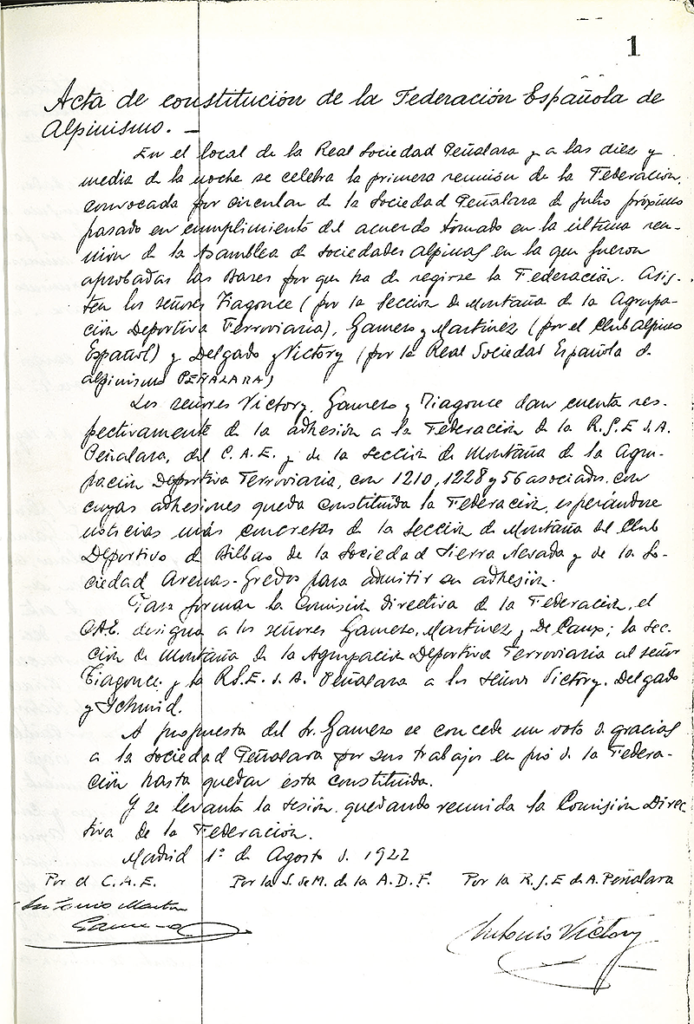 1
Acta de constitución de la Federación Española de
Alpinismo. —
En el local de la Real Sociedad Peñalara y a las diez y
media de la noche se celebra la primera reunión de la Federación,
convocada por circular de la Sociedad Peñalara de julio próximo
pasado en cumplimiento del acuerdo tomado en la última reu-
nión de la Asamblea de Sociedades alpinas en la que fueron
aprobadas las Bases por que ha de regirse la Federación. Asis-
ten los señores Tiagonce (por la Sección de Montaña de la Agrupa-
ción Deportiva Ferroviaria), Gamero y Martínez (por el Club Alpino
Español) y Delgado y Victory (por la Real Sociedad Española d.
alpinismo PEÑALARA)
Los señores Victory, Gamero y Tiagonce dan cuenta res-
pectivamente de la adhesión a la Federación de la R.S.E. d A.
Peñalara, del C.A.E. y de la Sección de Montaña de la Agru-
pación Deportiva Ferroviaria, con 1210, 1228 y 56 asociados, con
cuyas adhesiones queda constituida la Federación, esperándose
noticias más concretas de la Sección de Montaña del Club
Deportivo de Bilbao de la Sociedad Sierra Nevada y de la So-
ciedad Arenas-Gredos para admitir su adhesión.
Para formar la Comisión directiva de la Federación, el
CAE. designa a los señores Gamero, Martínez y De Caux; la Sec-
ción de Montaña de la Agrupación Deportiva Ferroviaria al señor
Tiagonce y la R.S.E. d. A. Peñalara a los señores Victory, Delgado
y Schmid.
A propuesta del Sr. Gamero se concede un voto d. gracias
a la Sociedad Peñalara por sus trabajos en pró d. la Federa-
ción hasta quedar esta constituida.
Y se levanta la sesión, quedando reunida la Comisión Direc
tiva de la Federación.
Madrid 1º de Agosto d. 1922
Por el C.A.E. Por la S. de M. de la A.D.F. Por la R.S.E d A. Peñalara
Antonio Victory